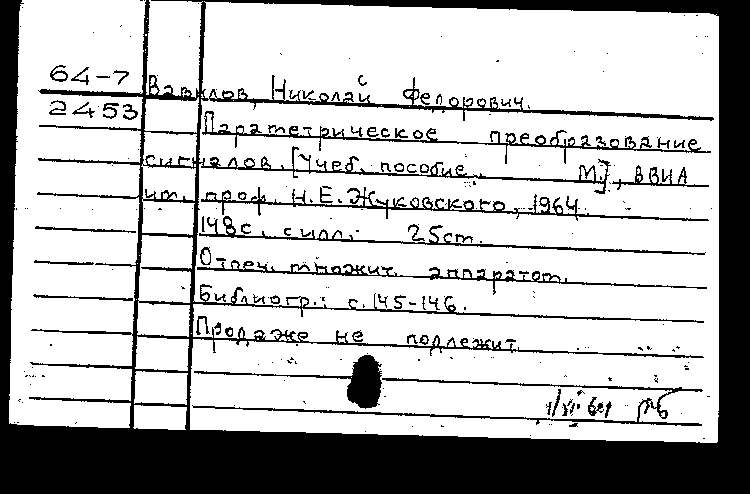 64-7 Вавилов, Николай Федорович.
2453
Параметрическое преобразование
сигналов. [Учеб. пособие. М.], ВВИА
им. проф. Н.Е. Жуковского, 1964.
148 с. с илл. 25 см.
Отпеч. множит. аппаратом.
Библиогр.: с. 145-146.
Продаже не подлежит